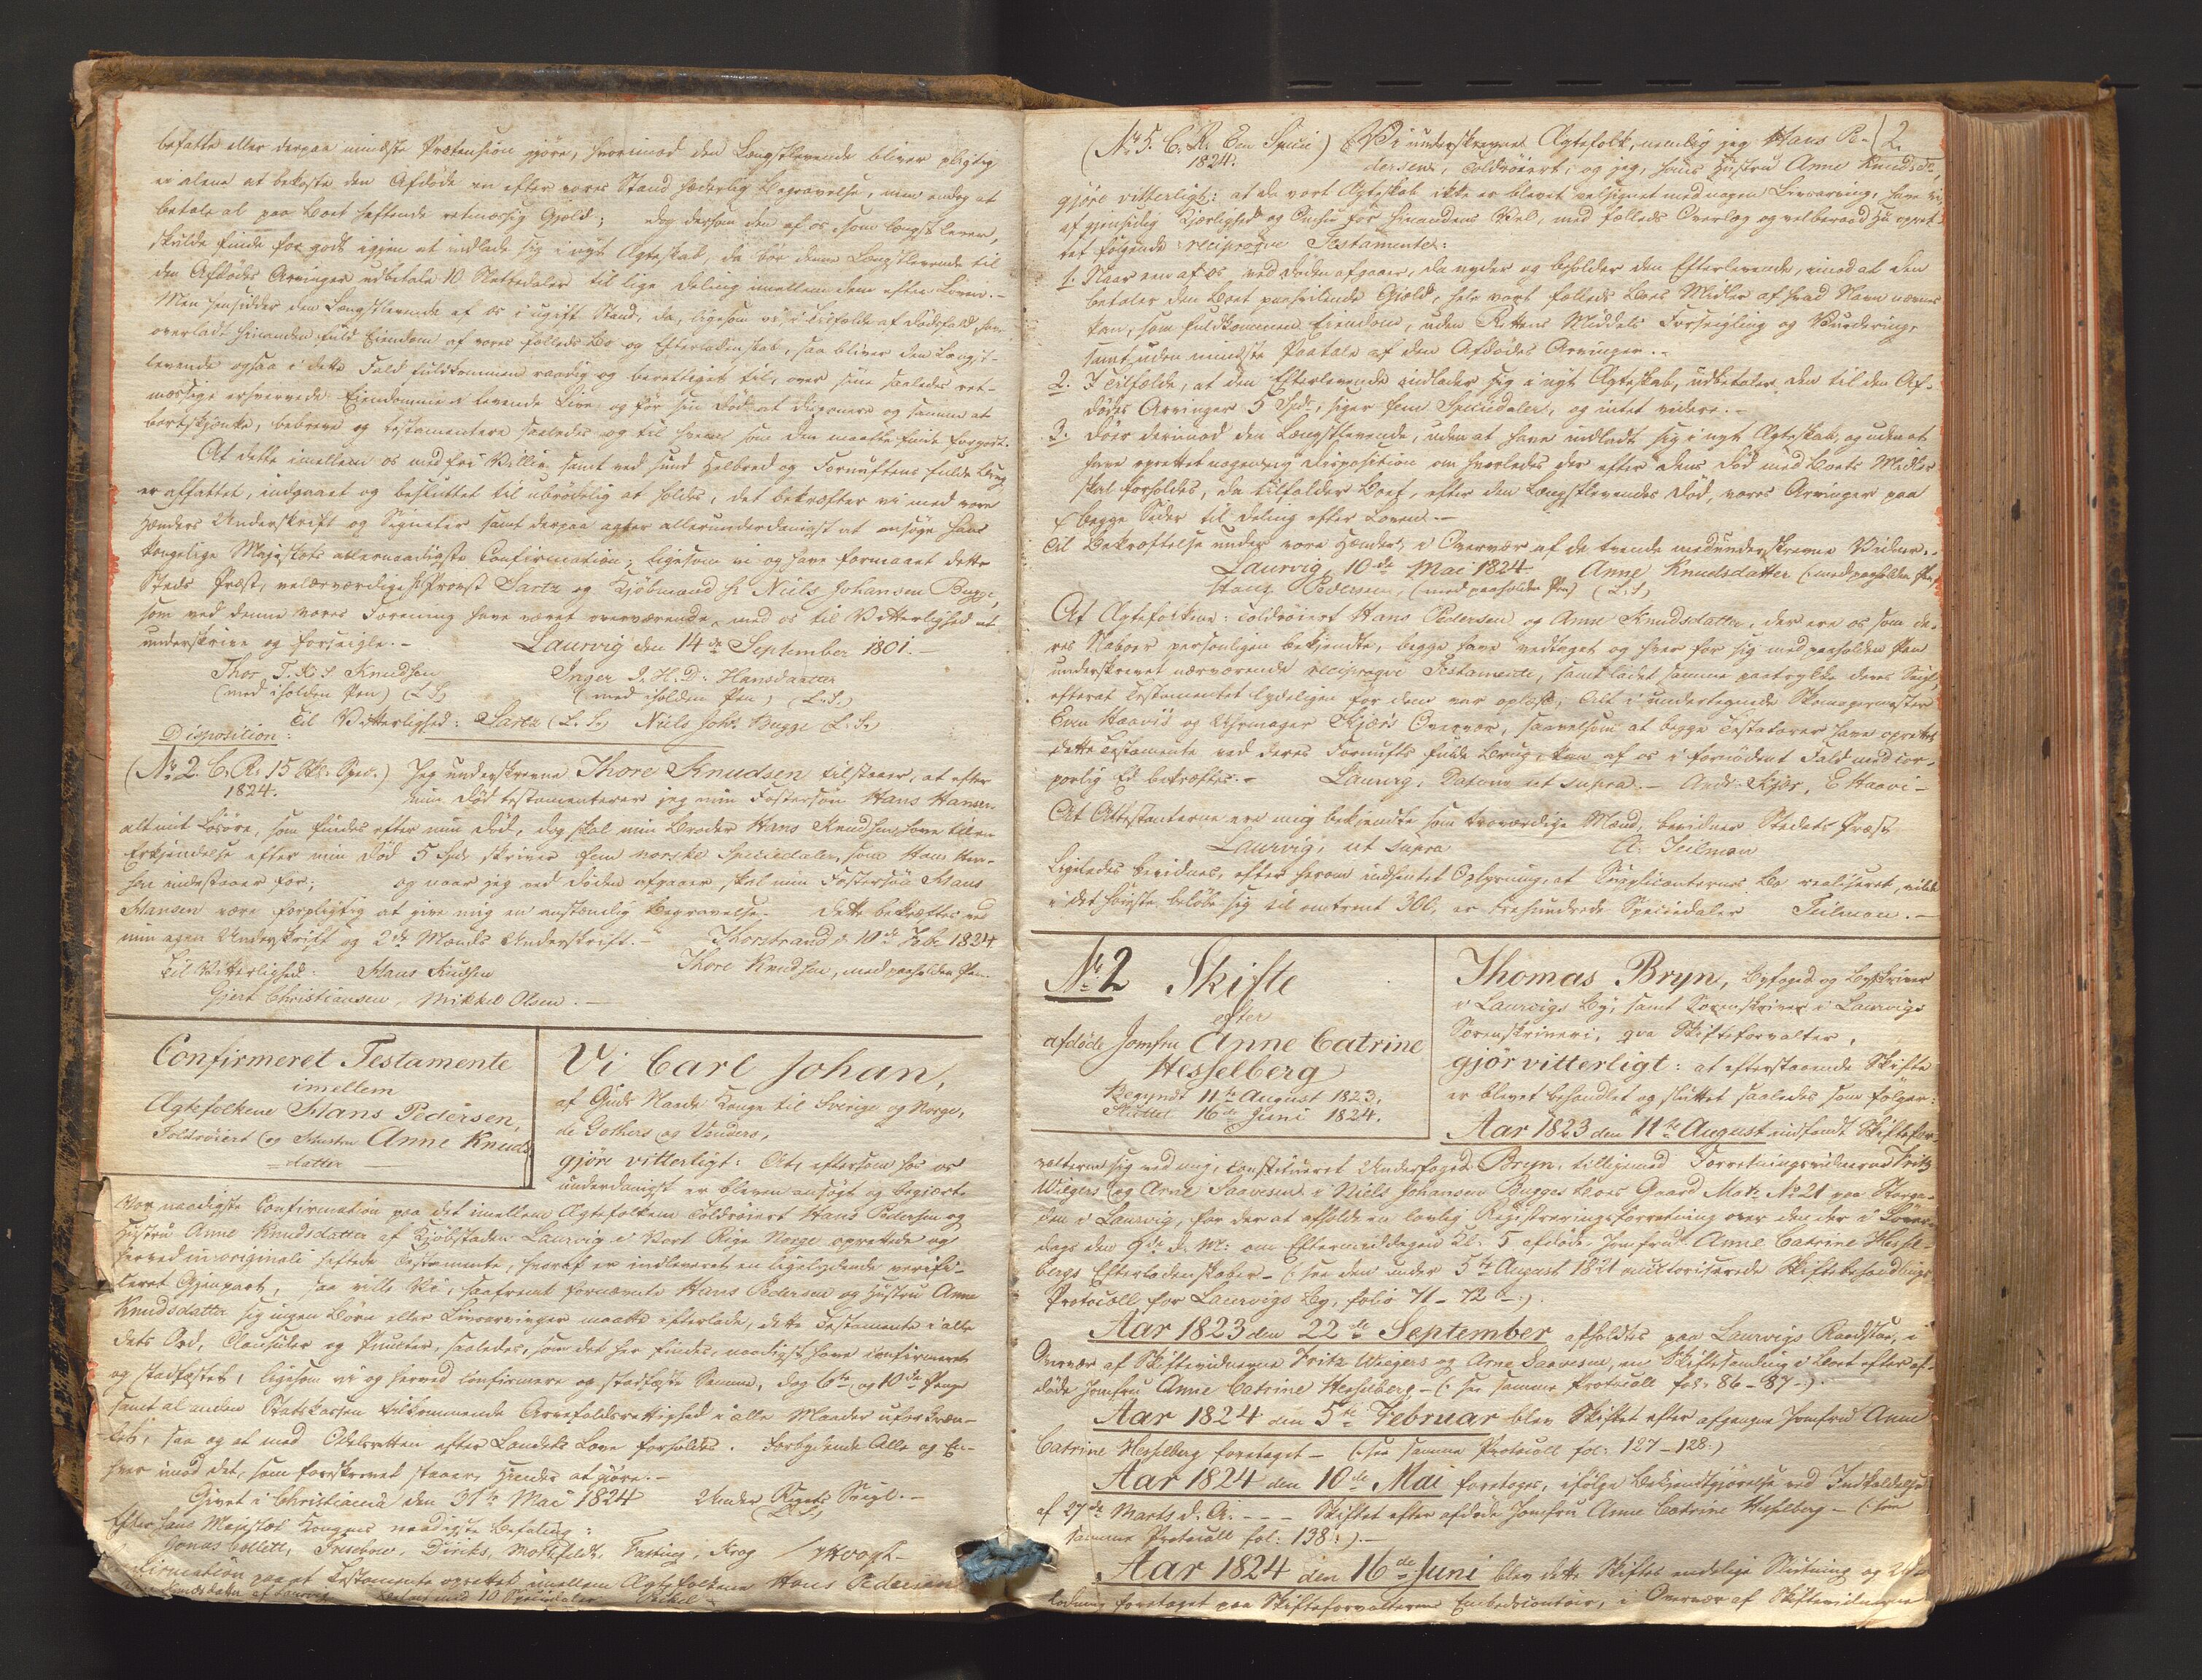 befatte eller derpaa mindste Prætension gjøre, hvorimod den Længstlevende bliver pligtig
ei alene at bekoste den Afdøde en efter vores Stand hæderlig Begravelse, men endog at
betale al paa Boet heftende retmæssig Gjeld; dog dersom den af os, som længst lever,
skulde finde for godt igjen at indlade sig i nyt Ægteskab, da bør denne Længstlevende til
den Afdødes Arvinger udbetale 10 Slettedaler til lige Deling imellem dem efter Loven.-
Men hensidder den Længstlevende af os i ugift Stand, da, ligesom vi, i Tilfælde af Dødsfald, have
overladt hinanden fuld Eiendom af vores fælleds Bo og Efterladenskab, saa bliver den Længst-
levende ogsaa i dette Fald fuldkommen raadig og berettiget til, over sine saaledes ret-
mæssige erhvervede Eiendomme i levende Live og før sin Død at disponere og samme at
bortskjænke, bebreve og testamentere saaledes og til hvem som den maatte finde forgodt.
At dette imellem os med fri Villie samt ved sund Helbred og Fornuftens fulde Brug
er affattet, indgaaet og besluttet til ubrødelig at holdes, det bekræfter vi med vore
Hænders Underskrift og Signeter samt derpaa agter allerunderdanigst at ansøge Hans
Kongelige Majestæts allernaadigste Confirmation; ligesom vi og have formaaet dette
Steds Præst, velærværdige Hr Provst Sartz og Kjøbmand Hr Niels Johansen Bugge,
som ved denne vores Forening have været overværende, med os til Vitterlighed at
underskrive og forseigle.- Laurvig den 14de September 1801.-
Thor T. K. S Knudsen Inger I. H. D: Hansdaatter
(med iholden Pen) (L.S) (med iholden Pen) (L.S.)
Til Vitterlighed: Sartz (L.S.) Niels Joh: Bugge (L.S.)
Disposition:
(No 2. C. R. 15 Sk: Spec.) Jeg underskrevne Thore Knudsen tilstaaer, at efter
1824. min Død testamenterer jeg min Fostersøn Hans Hansen
alt mit Løsøre, som findes efter min Død, dog skal min Broder Hans Knudsen have til en
Erkjendelse efter min Død 5 Spd. skriver fem norske Speciedaler, som Hans Han-
sen indestaaer for; og naar jeg ved Døden afgaaer, skal min Fostersøn Hans
Hansen være forpligtig at give mig en anstændig Begravelse. Dette bekræftes ved
min egen Underskrift og 2de Mænds Underskrift.- Thorstrand, d. 10de Febr 1824.
Til Vitterlighed: Hans Knudsen Thore Knudsen, med paaholden Pen.
Gjert Christiansen, Mikkel Olsen.-
Confirmeret Testamente
imellem
Ægtefolkene Hans Pedersen,
Toldrøiert og Hustru Anne Knuds-
datter
Vi Carl Johan,
af Guds Naade Konge til Sverige og Norge,
de Gothers og Venders,
gjøre vitterligt: At, eftersom hos os
underdanigst er bleven ansøgt og begjært
Vor naadigste Confirmation paa det imellem Ægtefolkene Toldrøiert Hans Pedersen og
Hustru Anne Knudsdatter af Kjøbstaden Laurvig i Vort Rige Norge oprettede og
herved in originali heftede Testamente, hvoraf er indleveret en ligelydende verifi-
ceret Gjenpart, saa ville Vi, saafremt fornævnte Hans Pedersen og Hustru Anne
Knudsdatter sig ingen Børn eller Livsarvinger maatte efterlade, dette Testamente i alle
dets Ord, Clausuler og Puncter, saaledes, som det her findes, naadigst have confirmeret
og stadfæstet, ligesom vi og herved confirmere og stadfæste Samme, dog 6te og 10de Penge
samt al anden Statskassen tilkommende Arvefaldsrettighed i alle Maader uforkræn-
ket, saa og at med Odelsretten efter Landets Love forholdes. Forbydende Alle og En-
hver imod det, som foreskrevet staaer, Hinder at gjøre.-
Givet i Christiania den 31te Mai 1824 Under Rigets Seigl.-
(L.S.)
Efter Hans Majestæt Kongens naadigste Befaling:
Jonas Collett, Treschow, Diriks, Motzfeldt, Fasting, Krog / Vogt-
Confirmation paa et Testamente oprettet imellem Ægtefolkene Hans Pedersen
af Laurvig med 10 Speciedaler
2.
(No 3. C. R. Een Specie) Vi underskrevne Ægtefolk, nemlig jeg Hans Pe-
1824. dersen, Toldrøiert, og jeg, hans Hustru Anne Knudsdr.
gjøre vitterligt: at da vort Ægteskab ikke er blevet velsignet med nogen Livsarving, have vi
af gjensidig Kjærlighed og Omhu for hinandens Vel, med fælleds Overlæg og velberaad Hu opret-
tet følgende reciproqve Testamente:
1. Naar een af os ved Døden afgaaer, da nyder og beholder den Efterlevende, imod at den
betaler den Boet paahvilende Gjæld, hele vort fælleds Boes Midler af hvad Navn nævnes
kan, som fuldkommen Eiendom, uden Rettens Middels Forseigling og Vurdering,
samt uden mindste Paatale af den Afdødes Arvinger.-
2. I Tilfælde, at den Efterlevende indlader sig i nyt Ægteskab, udbetaler den til den Af-
dødes Arvinger 5 Spd, siger fem Speciedaler, og intet videre.-
3. Døer derimod den Længstlevende, uden at have indladt sig i nyt Ægteskab, og uden at
have oprettet nogensig Disposition om hvorledes der efter dens Død med Boets Midler
skal forholdes, da tilfalder Boet, efter den Længstlevendes Død, vores Arvinger paa
begge Sider til Deling efter Loven.-
Til Bekræftelse under vore Hænder, i Overvær af de tvende medunderskrevne Vidner.-
Laurvig, 10de Mai 1824. Anne Knudsdatter (med paaholden Pen)
Hans Pedersen, (med paaholden Pen) (L.S)
At Ægtefolkene: Toldrøiert Hans Pedersen og Anne Knudsdatter, der ere os som de-
res Naboer personligen bekjendte, begge have vedtaget og hver for sig med paaholden Pen
underskrevet nærværende reciproqve Testamente, samt ladet samme paatrykke deres Seigl,
efterat Testamentet lydeligen for dem var oplæst, Alt i undertegnede Skomagermester
Even Haavis og Uhrmager Kjærs Overvær, saavelsom at begge Testatorer have oprettet
dette Testamente ved deres Fornufts fulde Brug, kan af os i fornødent Fald med cor-
porlig Ed bekræftes.- Laurvig, Datum ut supra.- And: Kjær, E Haavi-
At Attestanterne ere mig bekjendte som troværdige Mænd, bevidner Stedets Præst
Laurvig, ut supra A. Teilman
Ligeledes bevidnes, efter herom indhentet Oplysning, at Suplicanternes Bo realiseret, vilde
i det høieste beløbe sig til omtrent 300, er trehundrede Speciedaler Teilman.-
No 2 Skifte
efter
afdøde Jomfru Anne Catrine
Hesselberg
Begyndt 11te August 1823.
Sluttet 16de Juni 1824.
Thomas Bryn, Byfoged og Byskriver
i Laurvigs By, samt Sorenskriver i Laurvigs
Sorenskriveri, qva Skifteforvalter,
gjør vitterligt: at efterstaaende Skifte
er blevet behandlet og sluttet saaledes som følger:
Aar 1823 den 11te August indfandt Skiftefor-
valteren sig ved mig, constitueret Underfoged Bryn, tilligemed Forretningsvidnerne Fritz
Wiegers og Arne Saavesen i Niels Johansen Bugges Boes Gaard Matr. No 21 paa Storga-
den i Laurvig, for der at afholde en lovlig Registreringsforretning over den der i Løver-
dags den 9de d. M: om Eftermiddagen Kl: 5 afdøde Jomfru Anne Catrine Hessel-
bergs Efterladenskaber - (: see den under 5te August 1821 authoriserede Skiftebehandlings-
Protocoll for Laurvigs By, folio 71 - 72 b-:).
Aar 1823 den 22de September afholdtes paa Laurvigs Raadstue, i
Overvær af Skiftevidnerne Fritz Wiegers og Arne Saavesen, en Skiftesamling i Boet efter af-
døde Jomfru Anne Catrine Hesselberg - (: see samme Protocoll fol: 86 - 87-:).
Aar 1824 den 5te Februar blev Skiftet efter afgangne Jomfru Anne
Catrine Hesselberg foretaget - (: see samme Protocoll fol: 127 - 128:)
Aar 1824 den 10de Mai foretoges, ifølge Bekjendtgjørelse ved Indkaldelse
af 27de Marts d. A. - - - Skiftet efter afdøde Jomfru Anne Catrine Hesselberg - (: see
samme Protocoll fol: 138:).-
Aar 1824 den 16de Juni blev dette Skiftes endelige Slutning og Ud-
lodning foretaget paa Skifteforvalterens Embedscontoir, i Overvær af Skiftevidnerne